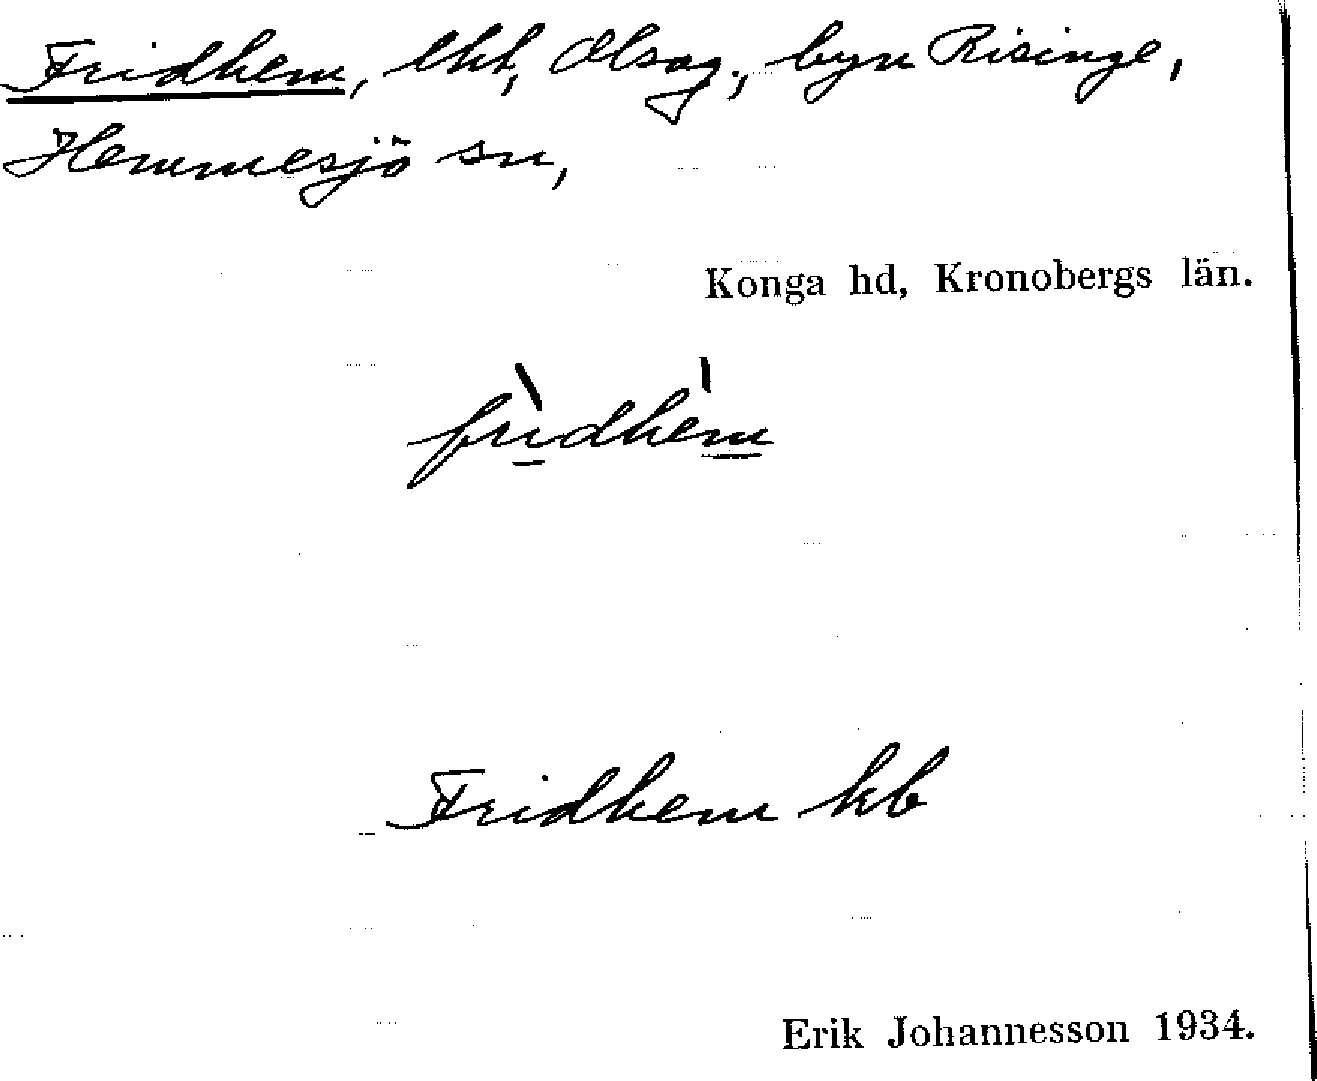 Fridhem, lht, Olsag., byn Risinge,
Hemmesjö sn,
Konga hd, Kronobergs län.
fri̱dhe̱m
Fridhem kb
Erik Johannesson 1934.